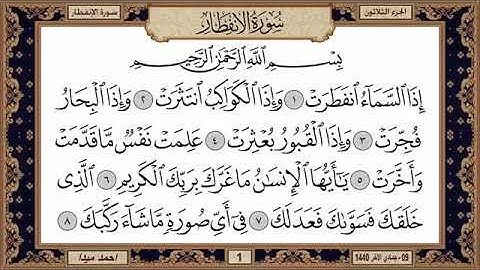 الجزء الثلاثون
سورة الإنفطار
سُورَةُ الِانفِطَارِ
بِسْمِ اللَّهِ الرَّحْمَٰنِ الرَّحِيمِ
إِذَا السَّمَاءُ انفَطَرَتْ ١ وَإِذَا الْكَوَاكِبُ انتَثَرَتْ ٢ وَإِذَا الْبِحَارُ
فُجِّرَتْ ٣ وَإِذَا الْقُبُورُ بُعْثِرَتْ ٤ عَلِمَتْ نَفْسٌ مَّا قَدَّمَتْ
وَأَخَّرَتْ ٥ يَا أَيُّهَا الْإِنسَانُ مَا غَرَّكَ بِرَبِّكَ الْكَرِيمِ ٦ الَّذِي
خَلَقَكَ فَسَوَّاكَ فَعَدَلَكَ ٧ فِي أَيِّ صُورَةٍ مَّا شَاءَ رَكَّبَكَ ٨
09 - جمادى الآخر 1440
1